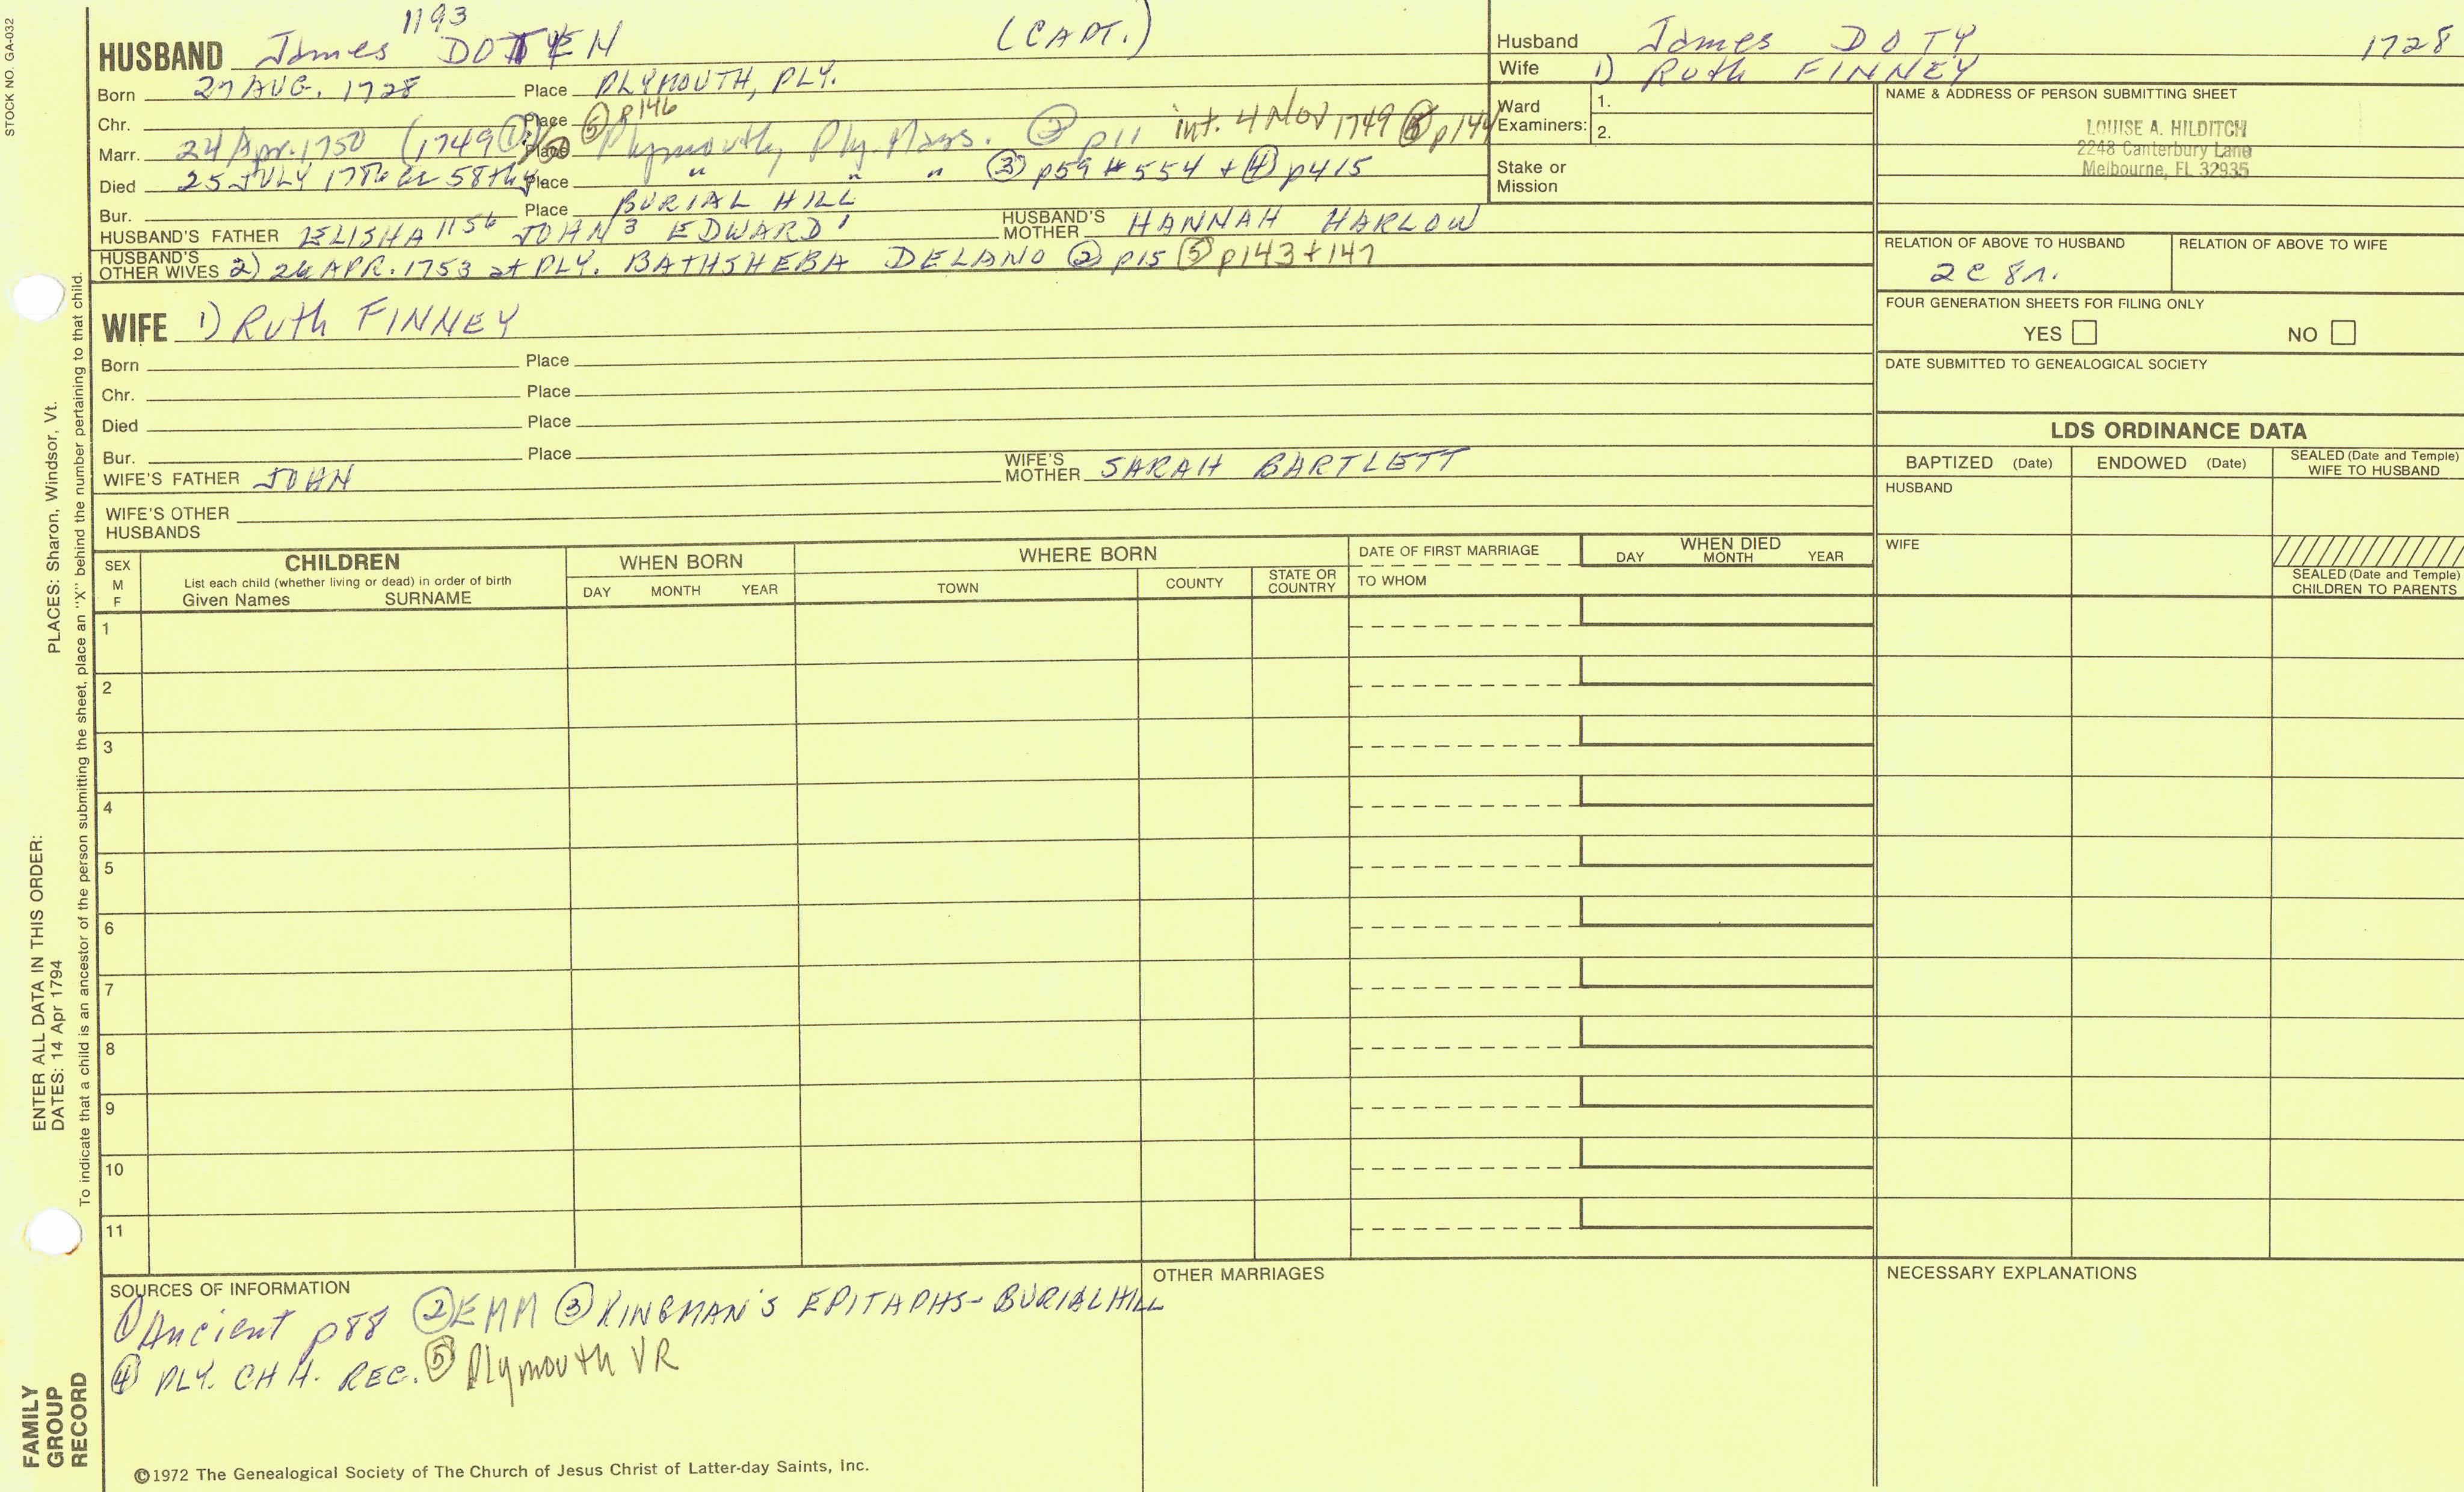 STOCK NO. GA-032
1193
HUSBAND James DOTEN (CAPT.)
Born 27 AUG. 1728 Place PLYMOUTH, PLY.
Chr. Place ⑤ p146
Marr. 24 Apr. 1750 (1749 ①) Place Plymouth, Ply. Mass. ② p11 int. 4 Nov 1749 ⑤ p144
Died 25 JULY Place " " " ③ p59 #554 + ④ p415
Bur. Place BURIAL HILL
HUSBAND'S FATHER ELISHA 1156 JOHN 3 EDWARD 1 HUSBAND'S MOTHER HANNAH HARLOW
HUSBAND'S OTHER WIVES 2) 26 APR. 1753 at PLY. BATHSHEBA DELANO ② p15 ⑤ p143 + 147
Husband James DOTY 1728
Wife 1) Ruth FINNEY
Ward Examiners: 1.
2.
Stake or Mission
NAME & ADDRESS OF PERSON SUBMITTING SHEET
LOUISE A. HILDITCH
2248 Canterbury Lane
Melbourne, FL 32935
RELATION OF ABOVE TO HUSBAND RELATION OF ABOVE TO WIFE
2 C 8 r.
FOUR GENERATION SHEETS FOR FILING ONLY
YES NO
DATE SUBMITTED TO GENEALOGICAL SOCIETY
WIFE 1) Ruth FINNEY
Born Place
Chr. Place
Died Place
Bur. Place
WIFE'S FATHER JOHN WIFE'S MOTHER SARAH BARTLETT
WIFE'S OTHER HUSBANDS
LDS ORDINANCE DATA
BAPTIZED (Date) ENDOWED (Date) SEALED (Date and Temple) WIFE TO HUSBAND
HUSBAND
WIFE
SEALED (Date and Temple) CHILDREN TO PARENTS
SEX M F
CHILDREN
List each child (whether living or dead) in order of birth
Given Names SURNAME
WHEN BORN
DAY MONTH YEAR
WHERE BORN
TOWN COUNTY STATE OR COUNTRY
DATE OF FIRST MARRIAGE
TO WHOM
WHEN DIED
DAY MONTH YEAR
1
2
3
4
5
6
7
8
9
10
11
SOURCES OF INFORMATION
① Ancient p88 ② EMM ③ KINGMAN'S EPITAPHS - BURIAL HILL
④ PLY. CH H. REC. ⑤ Plymouth VR
OTHER MARRIAGES
NECESSARY EXPLANATIONS
©1972 The Genealogical Society of The Church of Jesus Christ of Latter-day Saints, Inc.
FAMILY GROUP RECORD
ENTER ALL DATA IN THIS ORDER:
DATES: 14 Apr 1794 PLACES: Sharon, Windsor, Vt.
To indicate that a child is an ancestor of the person submitting the sheet, place an "X" behind the number pertaining to that child.